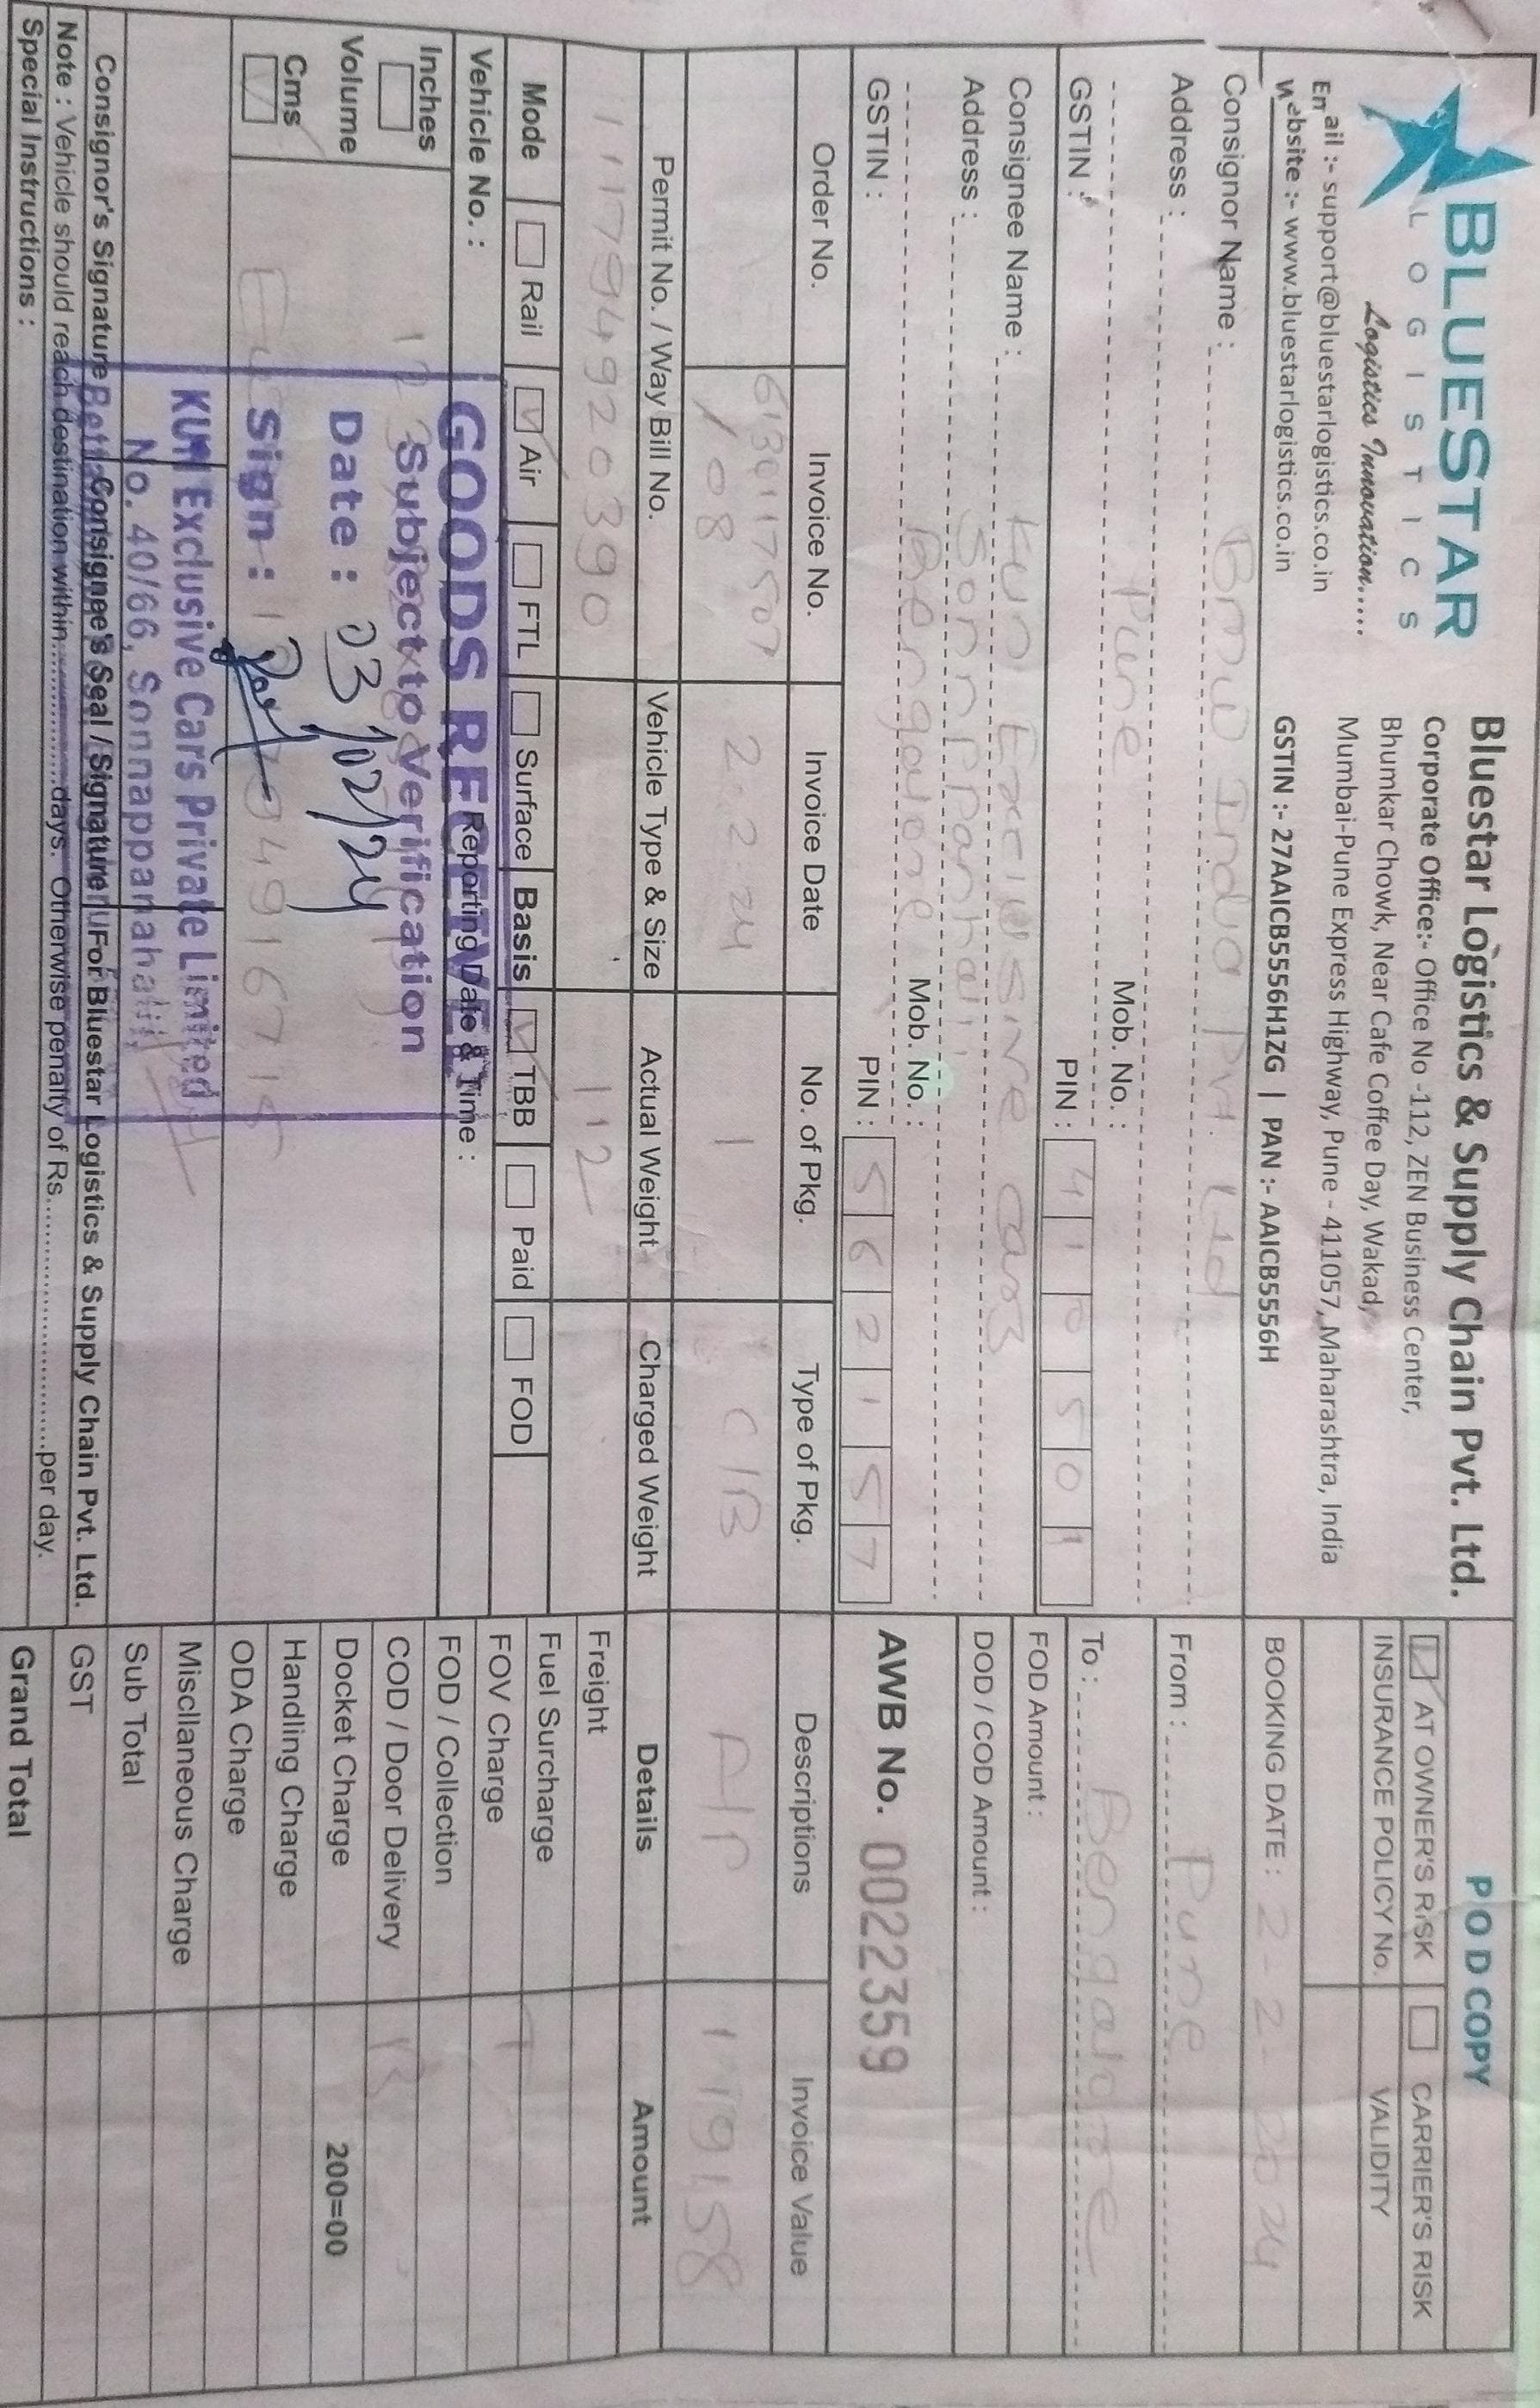 BLUESTAR
LOGISTICS
Logistics Innovation.....
Email :- support@bluestarlogistics.co.in
Website :- www.bluestarlogistics.co.in
Bluestar Logistics & Supply Chain Pvt. Ltd.
Corporate Office:- Office No -112, ZEN Business Center,
Bhumkar Chowk, Near Cafe Coffee Day, Wakad,
Mumbai-Pune Express Highway, Pune - 411057, Maharashtra, India
GSTIN :- 27AAICB5556H1ZG | PAN :- AAICB5556H
POD COPY
AT OWNER'S RISK CARRIER'S RISK
INSURANCE POLICY No. VALIDITY
BOOKING DATE : 2-2 2024
Consignor Name : BMW India Pvt. Ltd
Address :
Pune Mob. No. :
GSTIN : PIN : 410501
From : Pune
To : Bengalore
Consignee Name : KUN Exclusive Cars
Address : Sonnppanhalli,
Bengalore Mob. No. :
GSTIN : PIN : 562157
FOD Amount :
DOD / COD Amount :
AWB No. 0022359
Order No. Invoice No. Invoice Date No. of Pkg. Type of Pkg. Descriptions Invoice Value
6130117507 /08 2-2-24 1 C/B A/P 119158
Permit No. / Way Bill No. Vehicle Type & Size Actual Weight Charged Weight Details Amount
111794920390 112
Mode Rail Air FTL Surface Basis TBB Paid FOD
Vehicle No. : Reporting Date & Time :
Inches
Volume
Cms
GOODS RECEIVED
Subject to Verification
Date : 03/02/24
Sign :
KUN Exclusive Cars Private Limited
No. 40/66, Sonnappanahalli,
Freight
Fuel Surcharge
FOV Charge
FOD / Collection
COD / Door Delivery
Docket Charge 200=00
Handling Charge
ODA Charge
Miscllaneous Charge
Sub Total
GST
Grand Total
Consignor's Signature Consignee's Seal / Signature For Bluestar Logistics & Supply Chain Pvt. Ltd.
Note : Vehicle should reach destination within.................days. Otherwise penalty of Rs..............................per day.
Special Instructions :